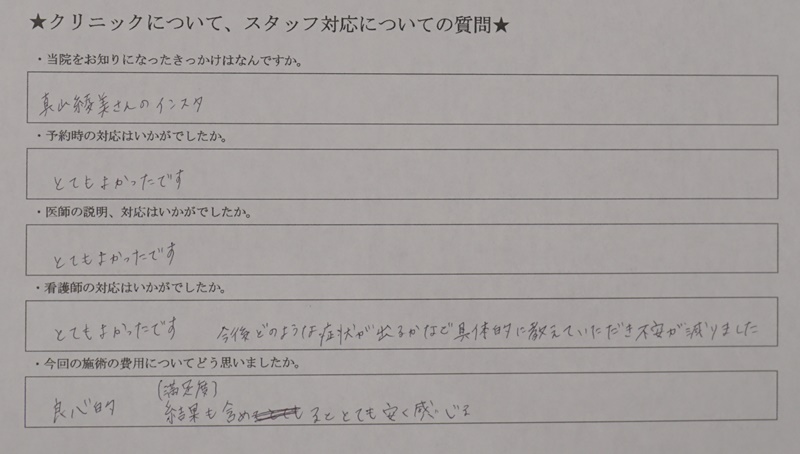 ★クリニックについて、スタッフ対応についての質問★
・当院をお知りになったきっかけはなんですか。
真山綾美さんのインスタ
・予約時の対応はいかがでしたか。
とてもよかったです
・医師の説明、対応はいかがでしたか。
とてもよかったです
・看護師の対応はいかがでしたか。
とてもよかったです 今後どのような症状が出るかなど具体的に教えていただき不安が減りました
・今回の施術の費用についてどう思いましたか。
(満足度)
良心的 結果も含めるととても安く感じる